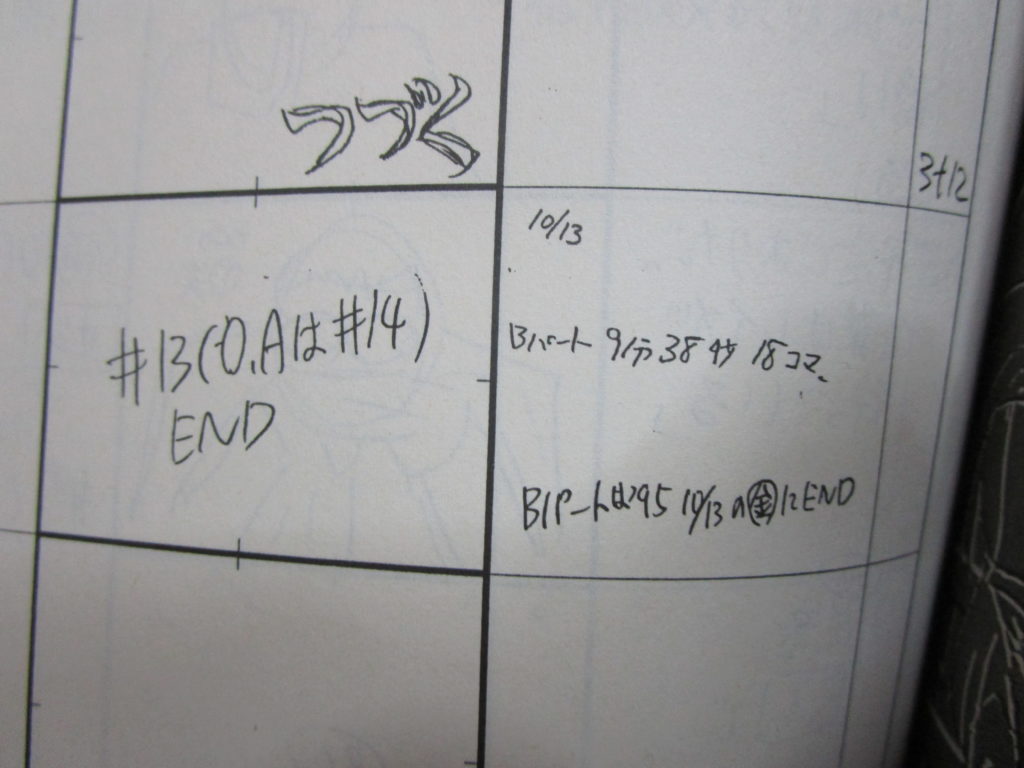 つづく
3+12
10/13
#13(O.Aは#14)
END
Bパート 9分38秒 18コマ、
Bパートは'95 10/13の㊎にEND